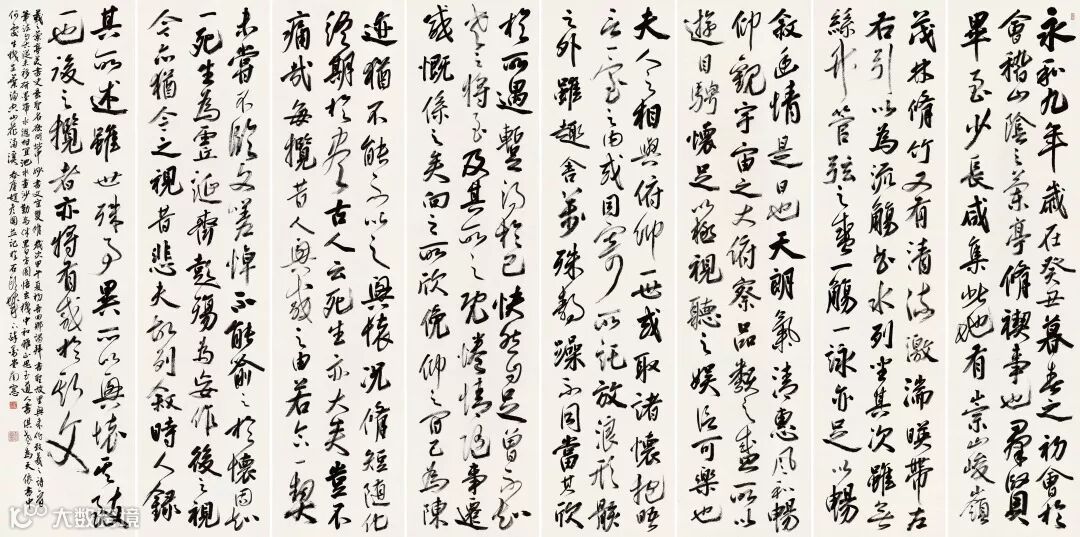 永和九年歲在癸丑暮春之初會於
會稽山陰之蘭亭脩禊事也群賢
畢至少長咸集此地有崇山峻嶺
茂林脩竹又有清流激湍暎帶左
右引以為流觴曲水列坐其次雖無
絲竹管弦之盛一觴一詠亦足以暢
敘幽情是日也天朗氣清惠風和暢
仰觀宇宙之大俯察品類之盛所以
遊目騁懷足以極視聽之娛信可樂也
夫人之相與俯仰一世或取諸懷抱晤
言一室之內或因寄所託放浪形骸
之外雖趣舍萬殊靜躁不同當其欣
於所遇暫得於己快然自足曾不知
老之將至及其所之既惓情隨事遷
感慨係之矣向之所欣俛仰之間已為陳
迹猶不能不以之興懷況脩短隨化
終期於盡古人云死生亦大矣豈不
痛哉每攬昔人興感之由若合一契
未嘗不臨文嗟悼不能喻之於懷固知
一死生為虛誕齊彭殤為妄作後之視
今亦猶今之視昔悲夫故列敘時人錄
其所述雖世殊事異所以興懷其致
一也後之攬者亦將有感於斯文
大数跨境